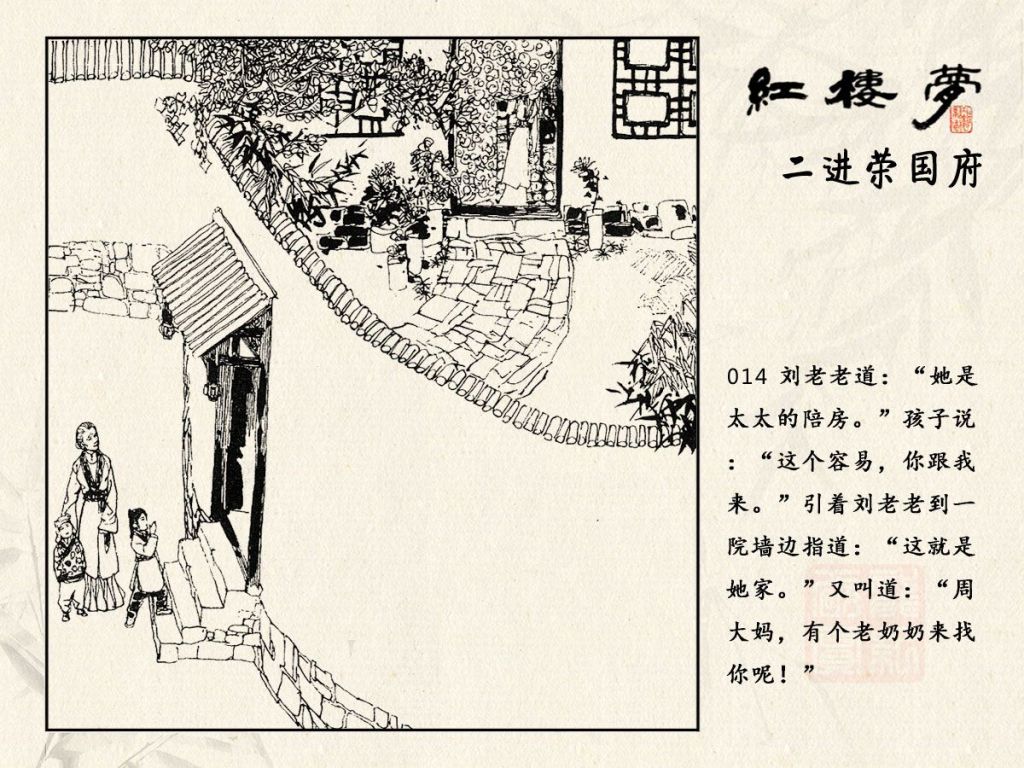 紅樓夢
二进荣国府
014 刘老老道：“她是
太太的陪房。”孩子说
：“这个容易，你跟我
来。”引着刘老老到一
院墙边指道：“这就是
她家。”又叫道：“周
大妈，有个老奶奶来找
你呢！”